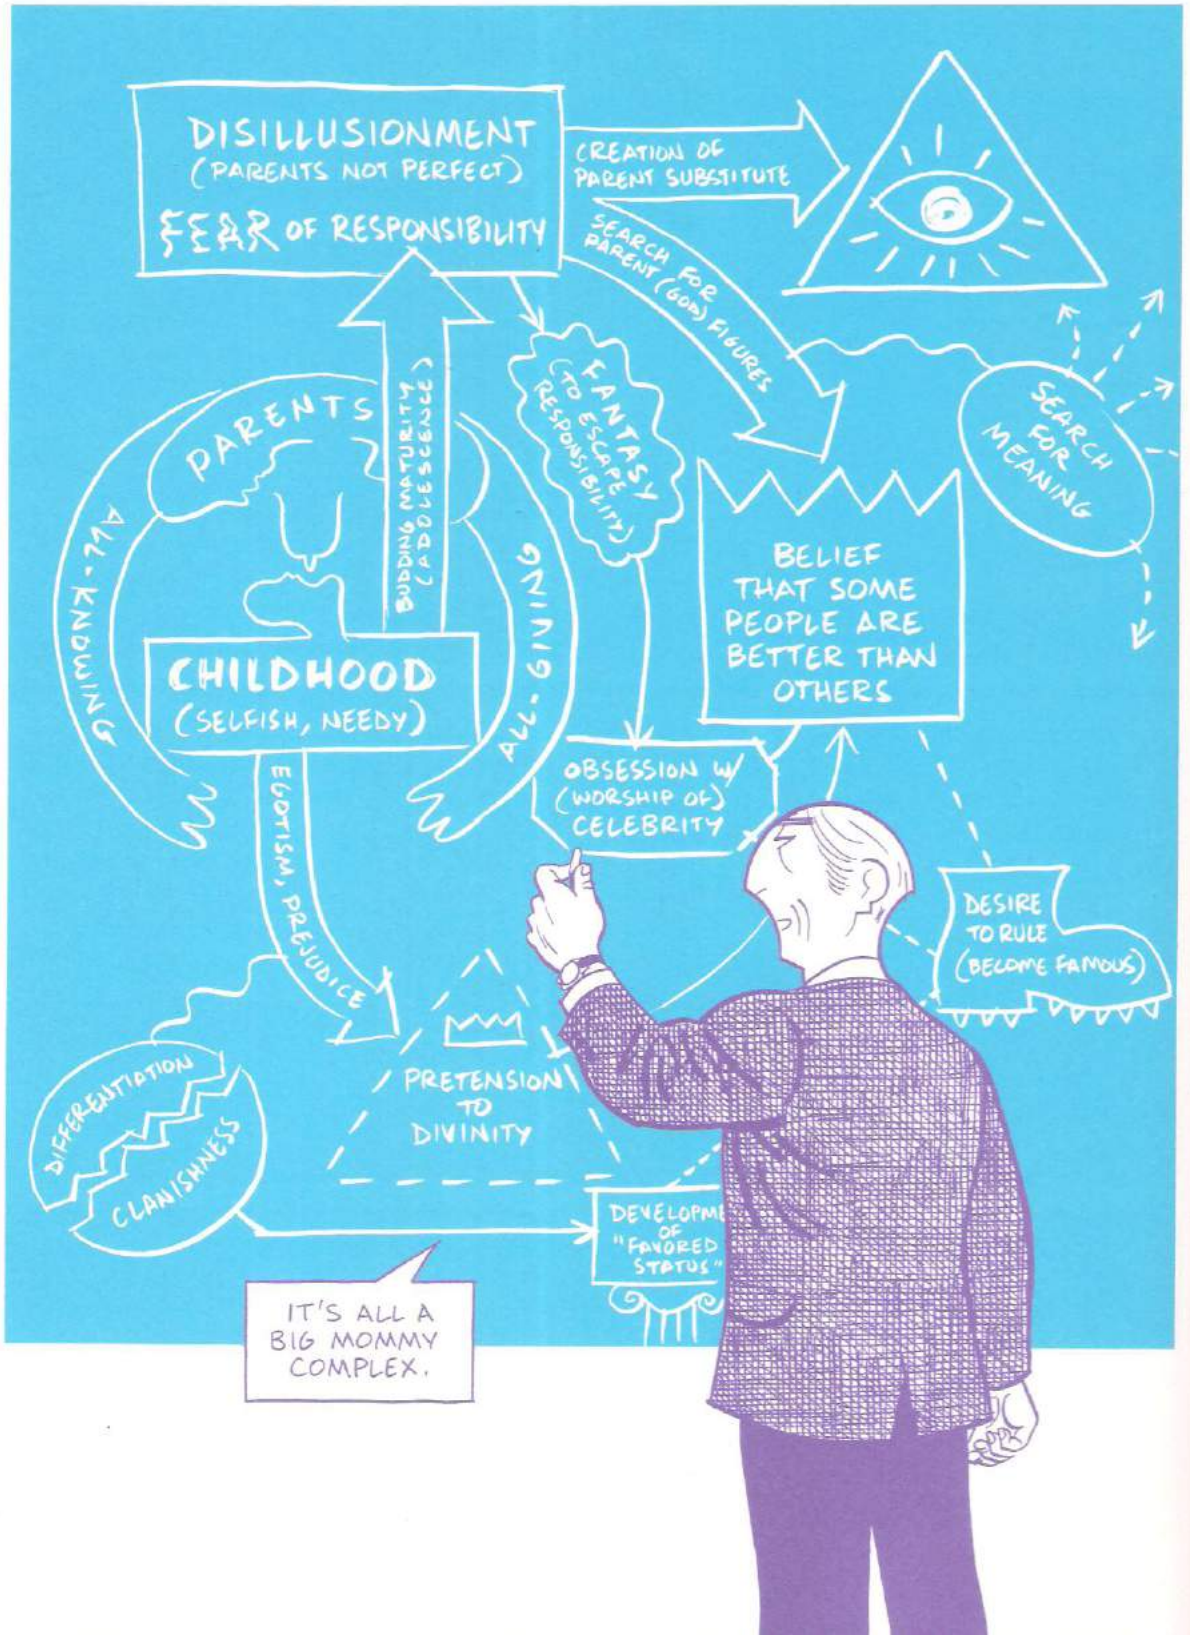 DISILLUSIONMENT
(PARENTS NOT PERFECT)
FEAR OF RESPONSIBILITY
CREATION OF
PARENT SUBSTITUTE
SEARCH FOR
PARENT (GOD) FIGURES
FANTASY
(TO ESCAPE
RESPONSIBILITY)
SEARCH
FOR
MEANING
PARENTS
ALL-KNOWING
ALL-GIVING
BUDDING MATURITY
(ADOLESCENCE)
BELIEF
THAT SOME
PEOPLE ARE
BETTER THAN
OTHERS
CHILDHOOD
(SELFISH, NEEDY)
OBSESSION W/
(WORSHIP OF)
CELEBRITY
EGOTISM, PREJUDICE
DESIRE
TO RULE
(BECOME FAMOUS)
DIFFERENTIATION
CLANISHNESS
PRETENSION
TO
DIVINITY
DEVELOPME
OF
"FAVORED
STATUS"
IT'S ALL A
BIG MOMMY
COMPLEX.